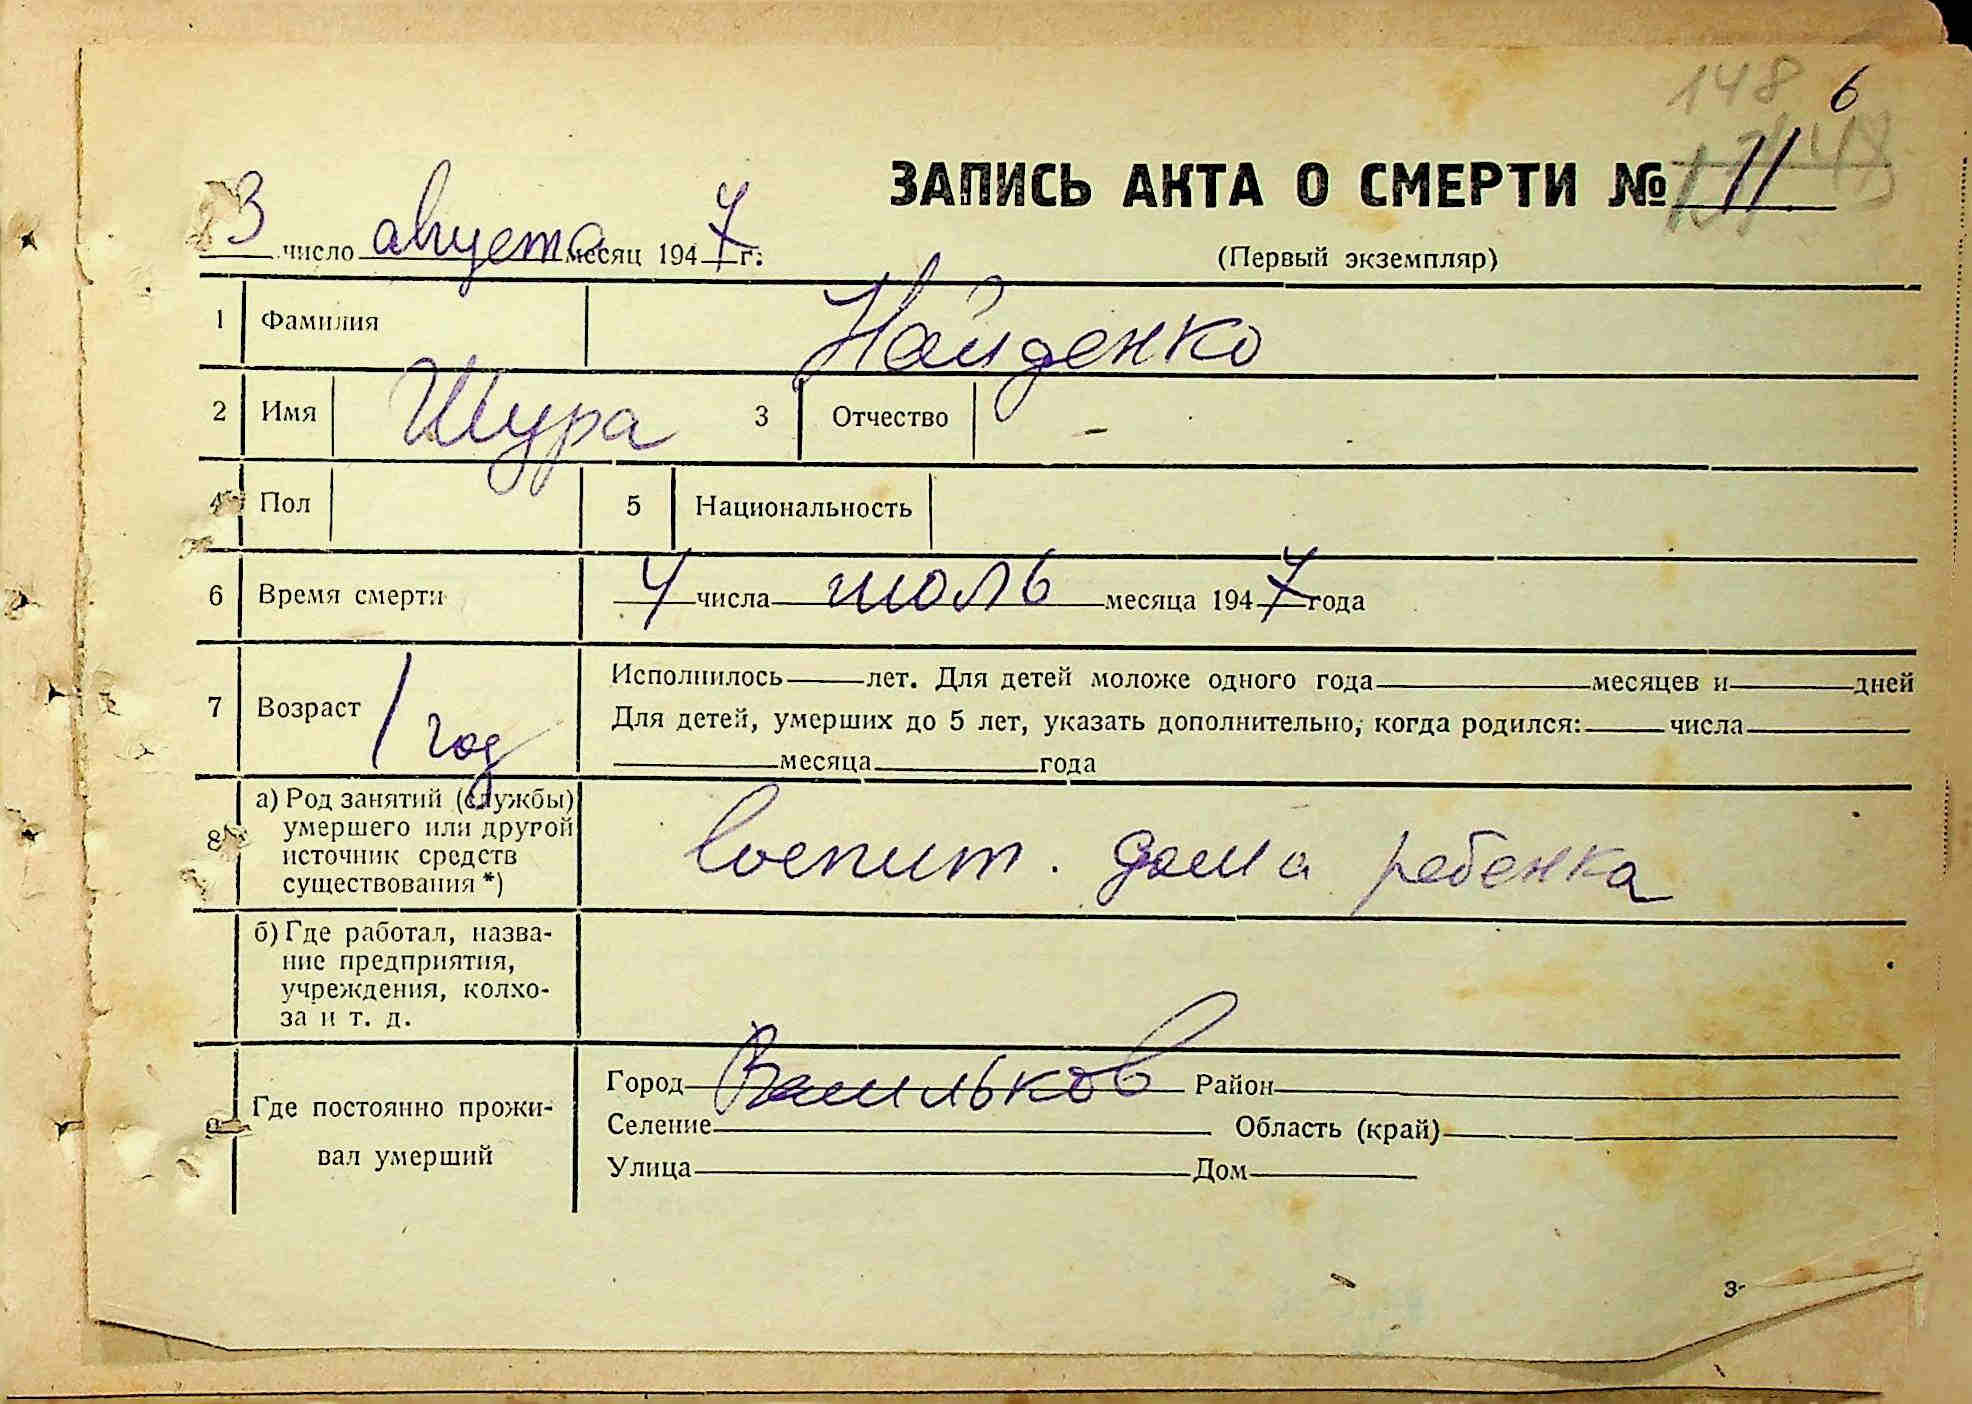 148 6
ЗАПИСЬ АКТА О СМЕРТИ № 11
3 число августа месяц 1947 г.
(Первый экземпляр)
1 Фамилия Найденко
2 Имя Шура 3 Отчество -
4 Пол 5 Национальность
6 Время смерти 4 числа июль месяца 1947 года
Исполнилось лет. Для детей моложе одного года месяцев и дней
7 Возраст 1 год Для детей, умерших до 5 лет, указать дополнительно, когда родился: числа
месяца года
8 а) Род занятий (службы)
умершего или другой
источник средств
существования *)
воспит. дома ребенка
б) Где работал, назва-
ние предприятия,
учреждения, колхо-
за и т. д.
9 Где постоянно прожи-
вал умерший
Город Васильков Район
Селение Область (край)
Улица Дом
3-